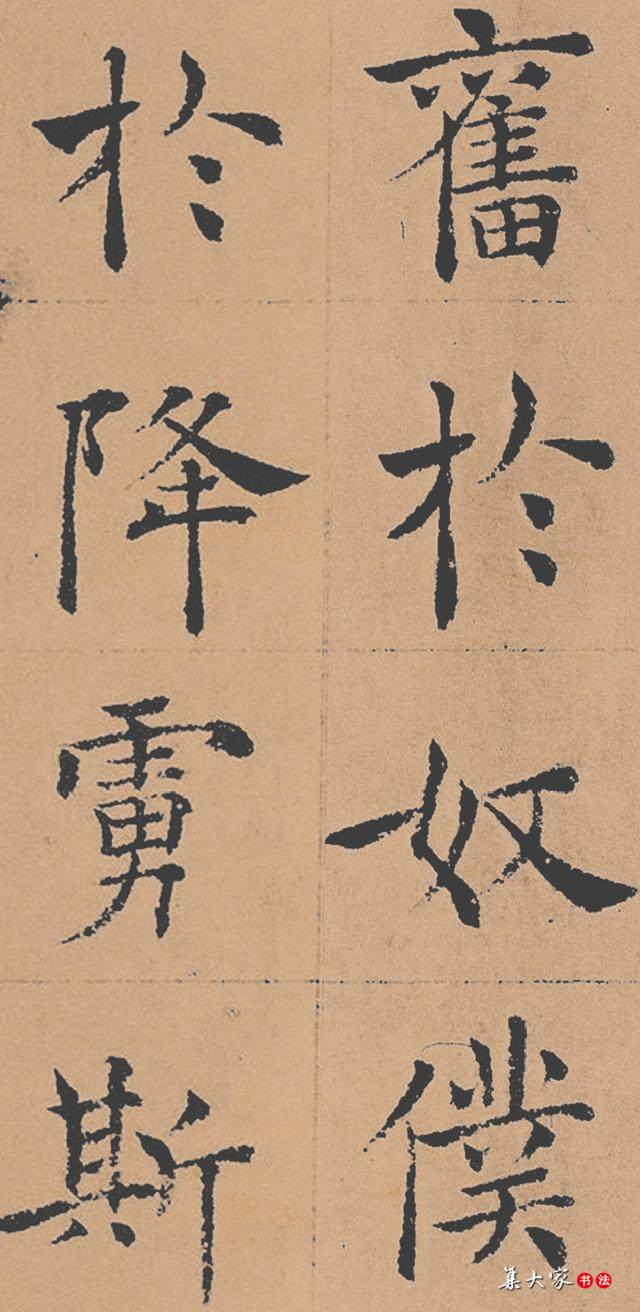 奮於奴僕
於降虜斯
集大家书法